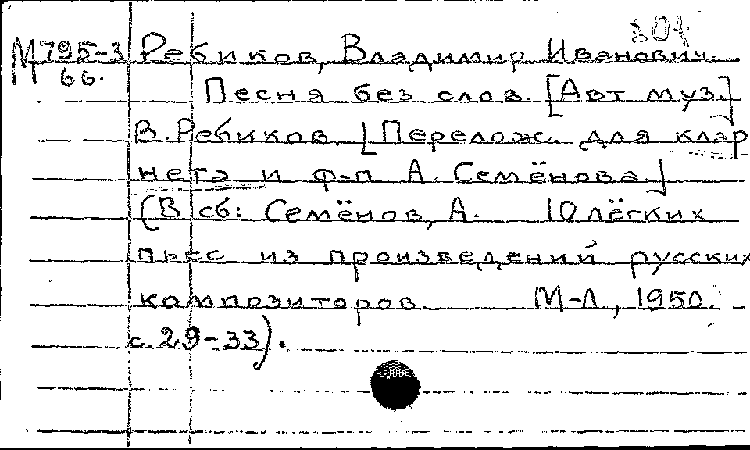 304
М 795-3 Ребиков, Владимир Иванович.
66.
Песня без слов. [Авт муз.]
В. Ребиков. [Перелож. для клар
нета и ф-п А. Семёнова.]
(В сб: Семёнов, А. 10 лёгких
пьес из произведений русских
композиторов. М-Л, 1950.
с. 29-33).